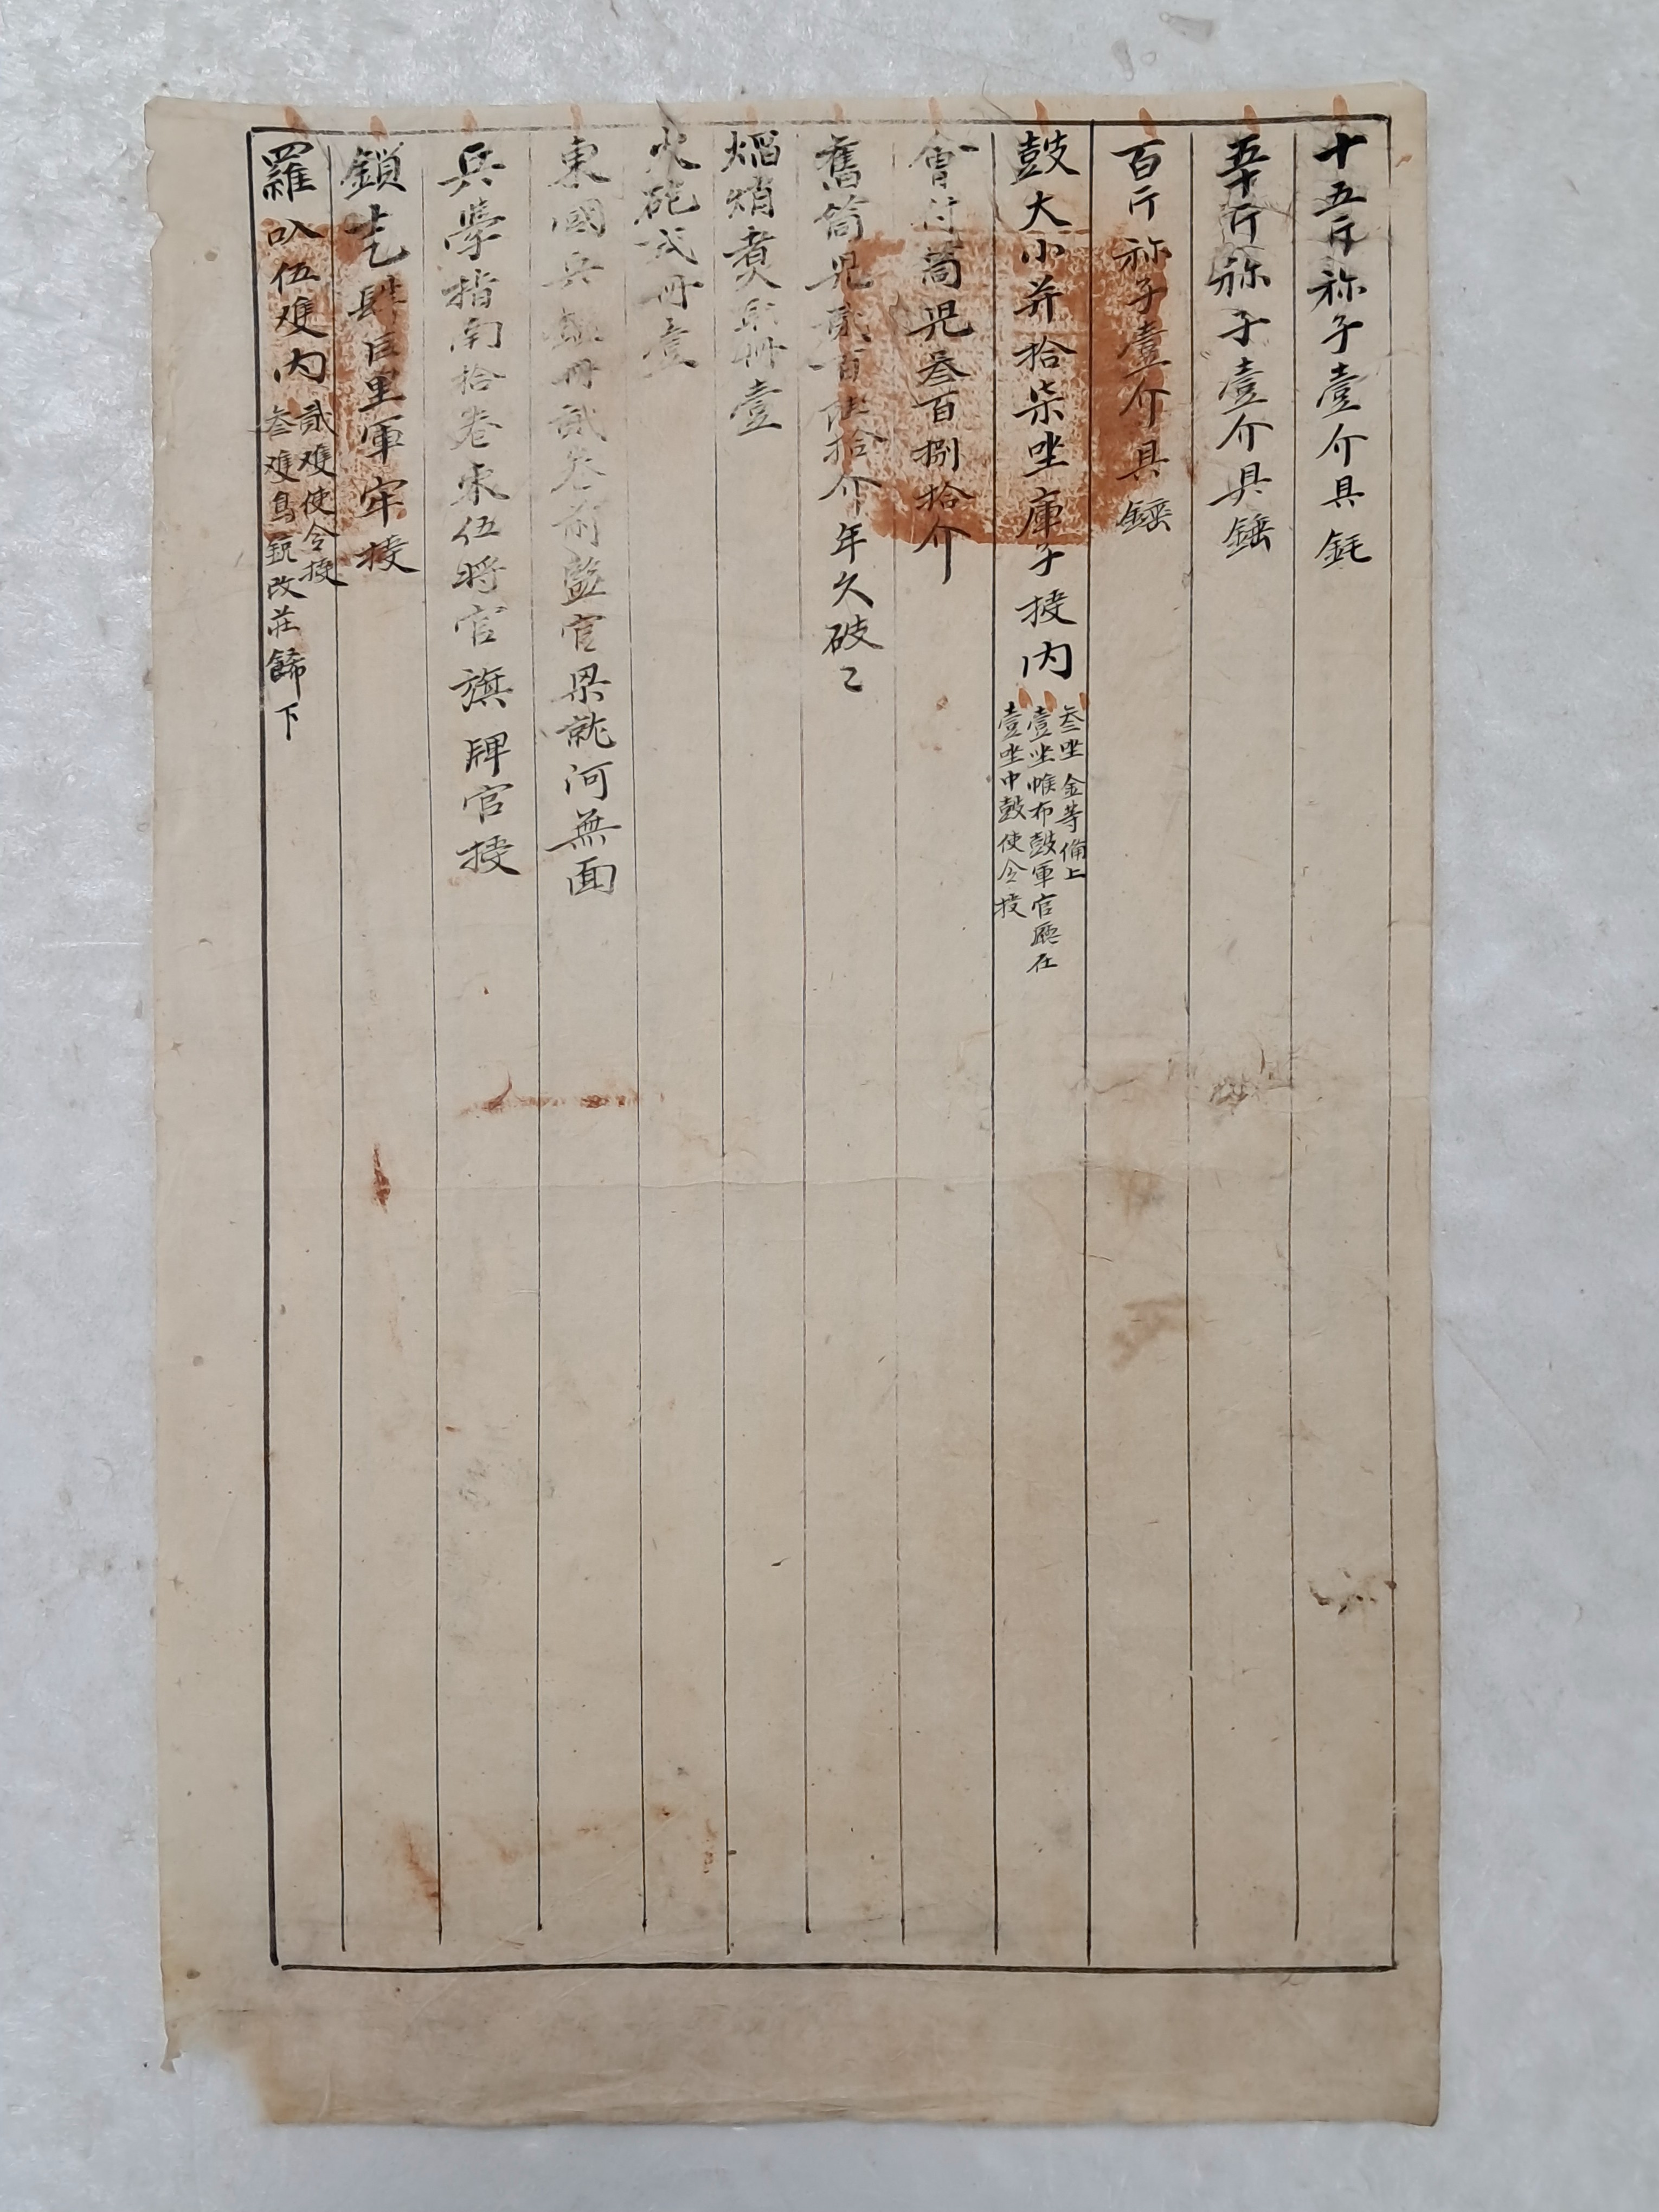 十五斤祢子壹介具錘
五十斤祢子壹介具錘
百斤祢子壹介具錘
鼓大小并拾柒坐庫子授内
叁坐金等俻上
壹坐帿布鼓軍官廳在
壹坐中鼓使令授
會付筒児叁百捌拾介
舊筒児貳百陸拾介年久破乙
焰焇煮貳冊壹
火砲式冊壹
東國兵鑑冊貳卷前監官梁就河無面
兵學指南拾卷束伍將官旗牌官授
鎖乧肆巨里軍牢授
羅叭伍䧺内
貳䧺使令授
叁䧺鳥銃改莊餙下